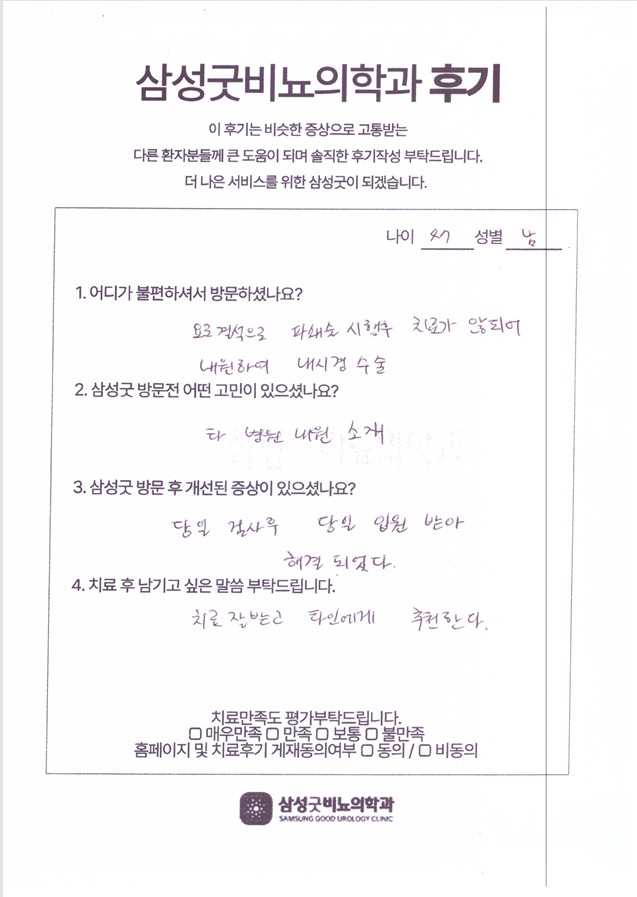 삼성굿비뇨의학과 후기
이 후기는 비슷한 증상으로 고통받는
다른 환자분들께 큰 도움이 되며 솔직한 후기작성 부탁드립니다.
더 나은 서비스를 위한 삼성굿이 되겠습니다.
나이 성별 남
1. 어디가 불편하셔서 방문하셨나요?
요로결석으로 파쇄술 시행후 치료가 않되어
내원하여 내시경 수술
2. 삼성굿 방문전 어떤 고민이 있으셨나요?
타 병원 내원 소개
3. 삼성굿 방문 후 개선된 증상이 있으셨나요?
당일 검사후 당일 입원 받아
해결 되었다.
4. 치료 후 남기고 싶은 말씀 부탁드립니다.
치료 잘받고 타인에게 추천한다.
치료만족도 평가부탁드립니다.
☐ 매우만족 ☐ 만족 ☐ 보통 ☐ 불만족
홈페이지 및 치료후기 게재동의여부 ☐ 동의 / ☐ 비동의
삼성굿비뇨의학과
SAMSUNG GOOD UROLOGY CLINIC